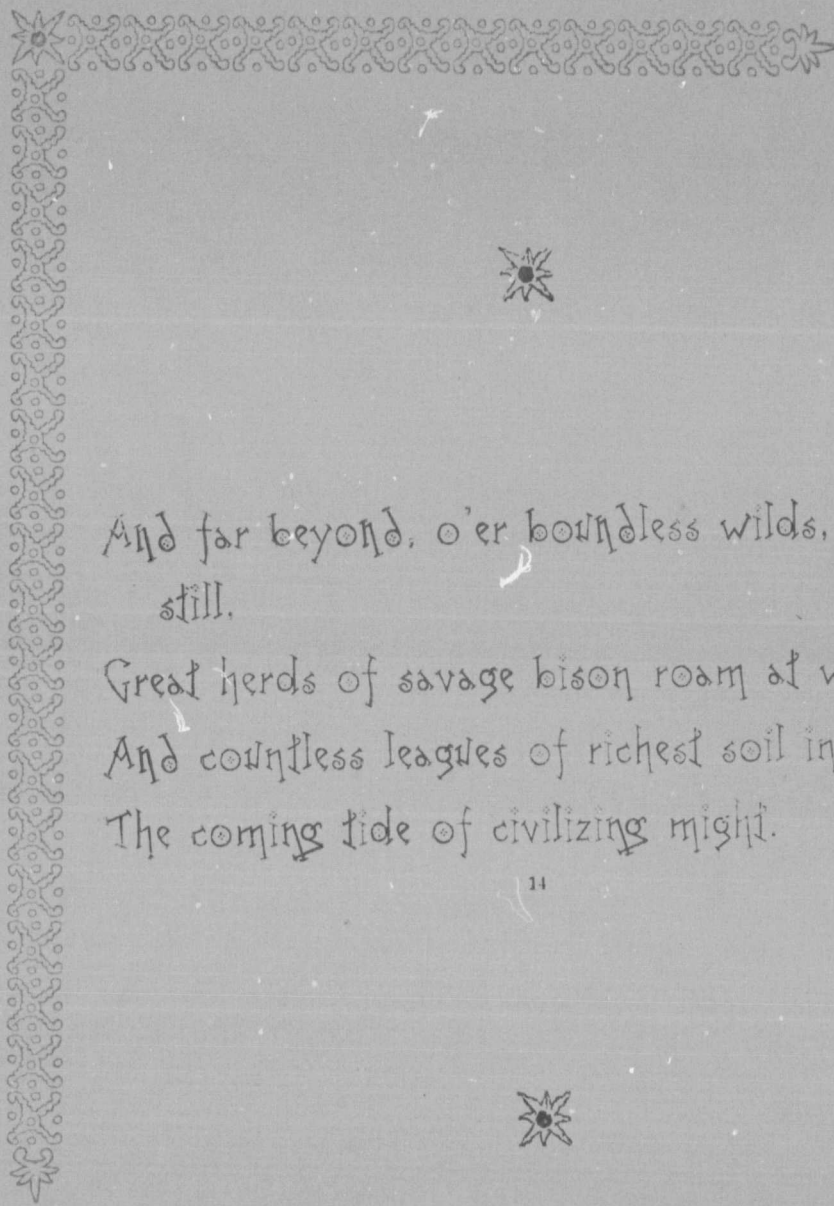 And far beyond, o'er boundless wilds,
still,
Great herds of savage bison roam at
And countless leagues of richest soil
The coming tide of civilizing might.
14